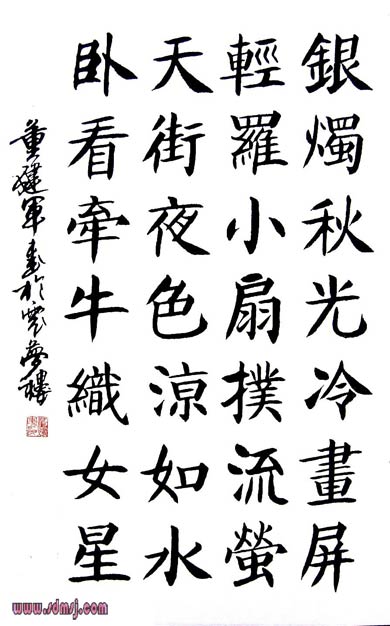 銀燭秋光冷畫屏
輕羅小扇撲流螢
天街夜色涼如水
卧看牽牛織女星
董建軍書於
www.sdmsj.com